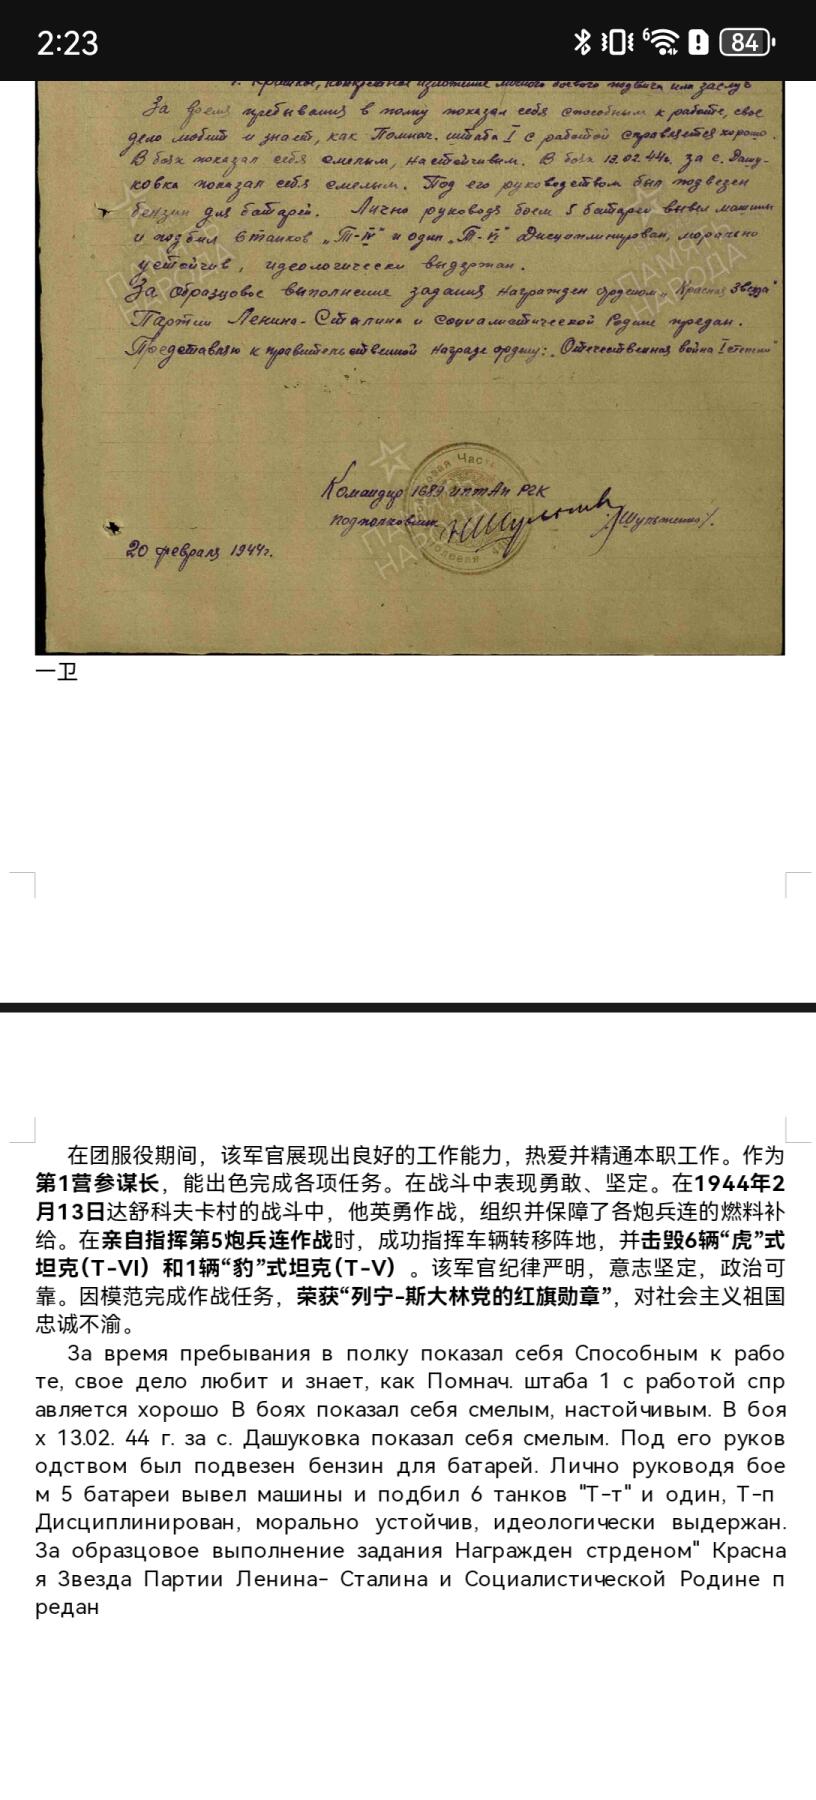 2:23
6
84
7. Краткое, конкретное изложение личного боевого подвига или заслуг
За время пребывания в полку показал себя способным к работе, свое
дело любит и знает, как Помнач. штаба I с работой справляется хорошо.
В боях показал себя смелым, настойчивым. В боях 13.02.44г. за с. Дашу-
ковка показал себя смелым. Под его руководством был подвезен
бензин для батарей. Лично руководя боем 5 батареи вывел машины
и подбил 6 танков „Т-IV" и один „Т-VI" Дисциплинирован, морально
устойчив, идеологически выдержан.
За образцовое выполнение задания награжден орденом „Красная Звезда"
Партии Ленина-Сталина и социалистической Родине предан.
Представляю к правительственной награде ордену: „Отечественная война I степени"
Командир 1689 иптап РГК
подполковник /Шульженко/.
20 февраля 1944г.
ПАМЯТЬ НАРОДА
ПАМЯТЬ НАРОДА
ПАМЯТЬ НАРОДА
一卫
在团服役期间，该军官展现出良好的工作能力，热爱并精通本职工作。作为
第1营参谋长，能出色完成各项任务。在战斗中表现勇敢、坚定。在1944年2
月13日达舒科夫卡村的战斗中，他英勇作战，组织并保障了各炮兵连的燃料补
给。在亲自指挥第5炮兵连作战时，成功指挥车辆转移阵地，并击毁6辆“虎”式
坦克（T-VI）和1辆“豹”式坦克（T-V）。该军官纪律严明，意志坚定，政治可
靠。因模范完成作战任务，荣获“列宁-斯大林党的红旗勋章”，对社会主义祖国
忠诚不渝。
За время пребывания в полку показал себя Способным к рабо
те, свое дело любит и знает, как Помнач. штаба 1 с работой спр
авляется хорошо В боях показал себя смелым, настойчивым. В боя
х 13.02. 44 г. за с. Дашуковка показал себя смелым. Под его руков
одством был подвезен бензин для батарей. Лично руководя бое
м 5 батареи вывел машины и подбил 6 танков "Т-т" и один, Т-п
Дисциплинирован, морально устойчив, идеологически выдержан.
За образцовое выполнение задания Награжден стрденом" Красна
я Звезда Партии Ленина- Сталина и Социалистической Родине п
редан